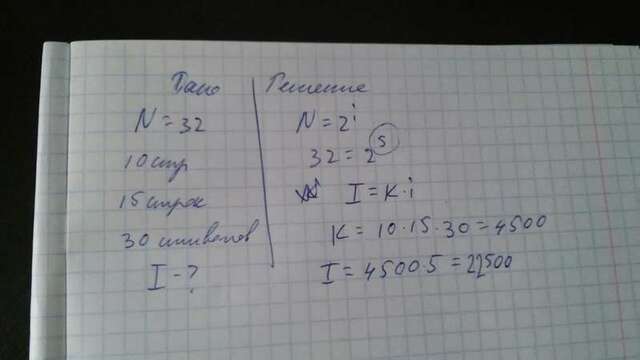 Дано
N = 32
10 стр
15 строк
30 символов
I - ?
Решение
N = 2^i
32 = 2^5
I = K·i
K = 10·15·30 = 4500
I = 4500·5 = 22500